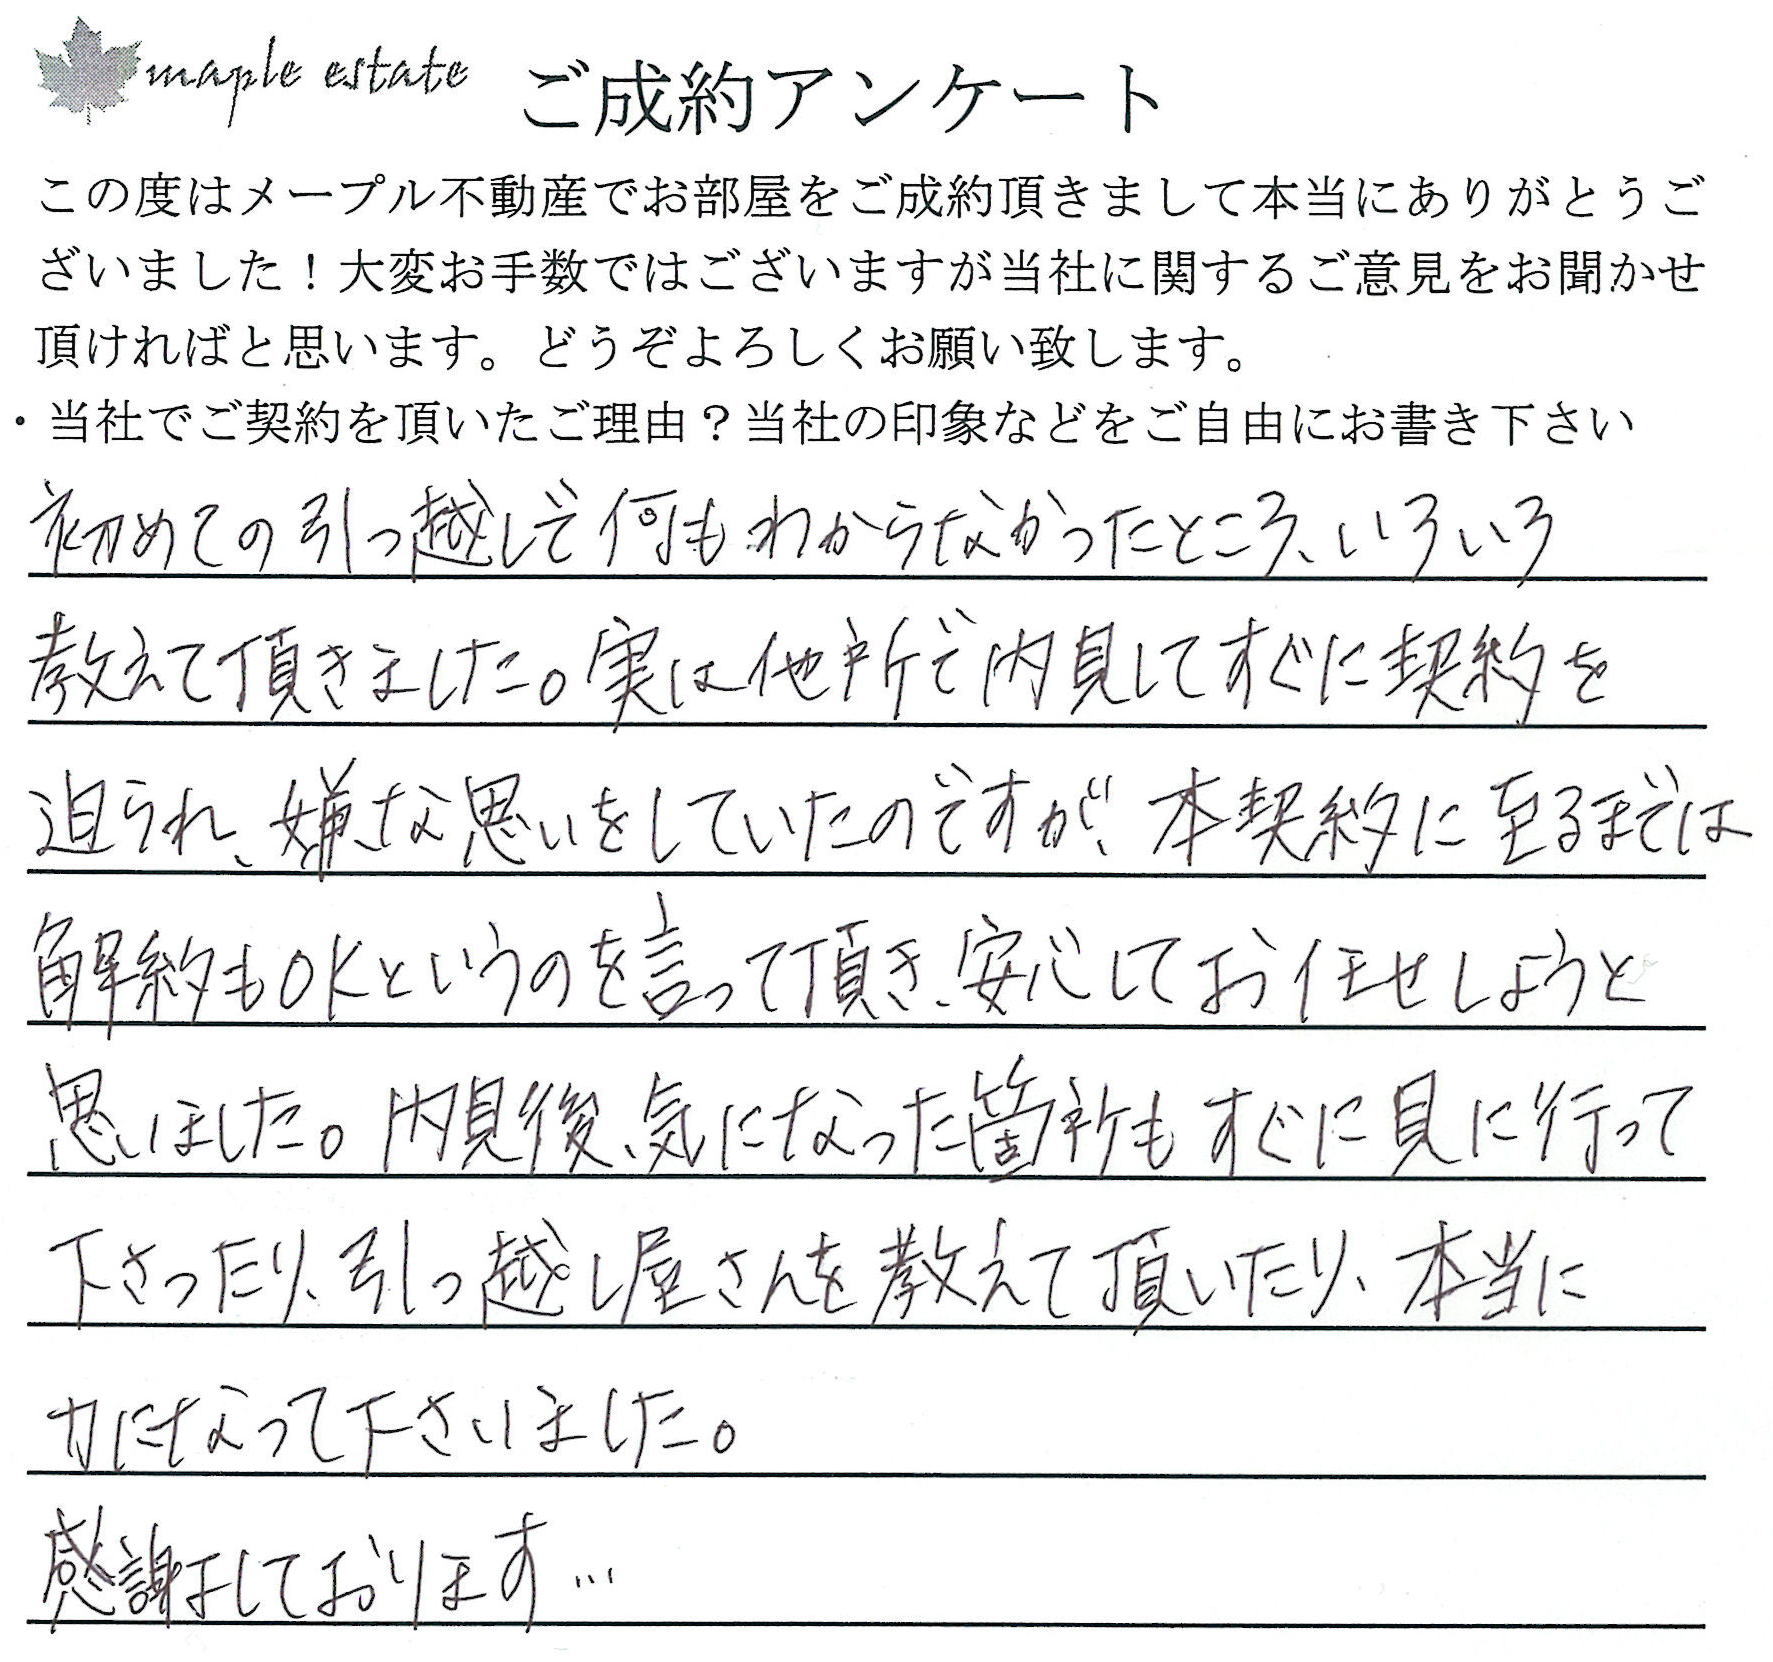 maple estate ご成約アンケート
この度はメープル不動産でお部屋をご成約頂きまして本当にありがとうご
ざいました！大変お手数ではございますが当社に関するご意見をお聞かせ
頂ければと思います。どうぞよろしくお願い致します。
・当社でご契約を頂いたご理由？当社の印象などをご自由にお書き下さい
初めての引っ越しで何もわからなかったところ、いろいろ
教えて頂きました。実は他所で内見してすぐに契約を
迫られ、嫌な思いをしていたのですが、本契約に至るまでは
解約もOKというのを言って頂き、安心してお任せしようと
思いました。内見後、気になった箇所もすぐに見に行って
下さったり、引っ越し屋さんを教えて頂いたり、本当に
力になって下さいました。
感謝しております…